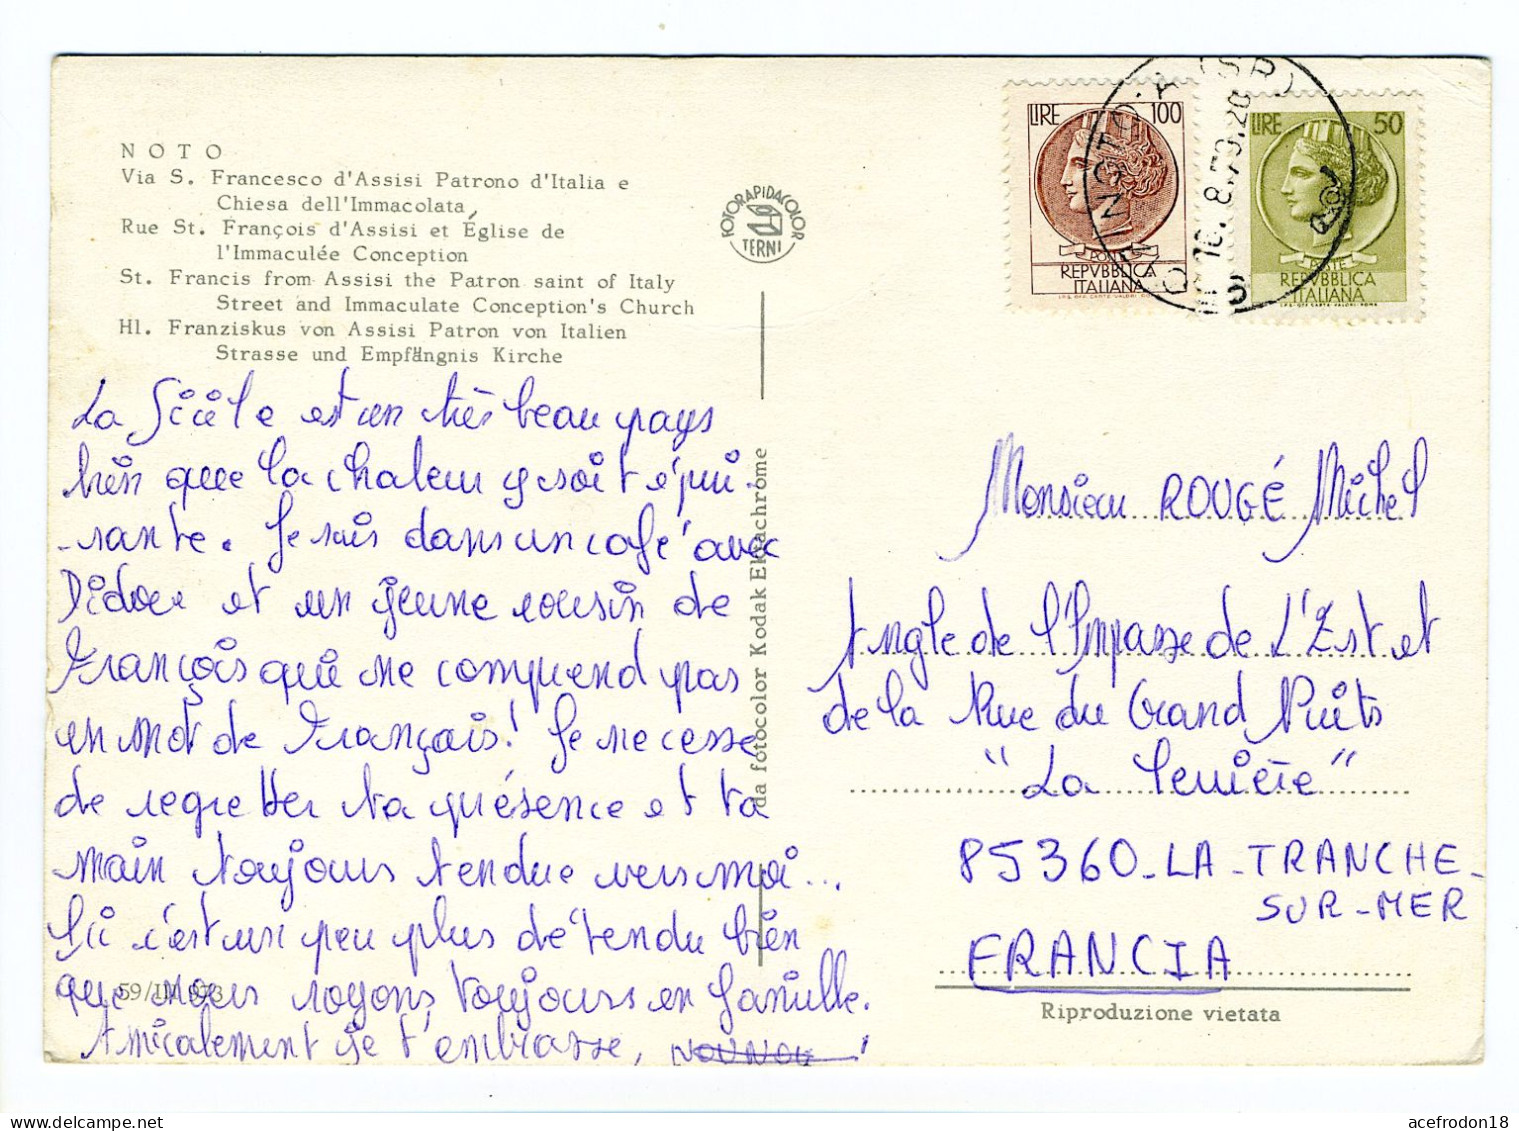 NOTO
Via S. Francesco d'Assisi Patrono d'Italia e
Chiesa dell'Immacolata
Rue St. François d'Assisi et Église de
l'Immaculée Conception
St. Francis from Assisi the Patron saint of Italy
Street and Immaculate Conception's Church
Hl. Franziskus von Assisi Patron von Italien
Strasse und Empfängnis Kirche
La Sicile est un très beau pays
bien que la chaleur y soit épui-
-sante. Je suis dans un café avec
Didier et un jeune cousin de
François qui ne comprend pas
un mot de Français! Je ne cesse
de regretter ta présence et ta
main toujours tendue vers moi...
Ici c'est un peu plus détendu bien
que nous soyons toujours en famille.
Amicalement je t'embrasse, NOUNOU!
59/III 973
FOTORAPIDACOLOR
TERNI
da fotocolor Kodak Ektachrome
LIRE 100
POSTE
REPVBBLICA
ITALIANA
LIRE 50
POSTE
REPVBBLICA
ITALIANA
(SR)
16.8.79.20
Monsieur ROUGÉ Michel
Angle de l'Impasse de L'Est et
de la Rue du Grand Puits
"La"
85360-LA-TRANCHE-
SUR-MER
FRANCIA
Riproduzione vietata
acefrodon18